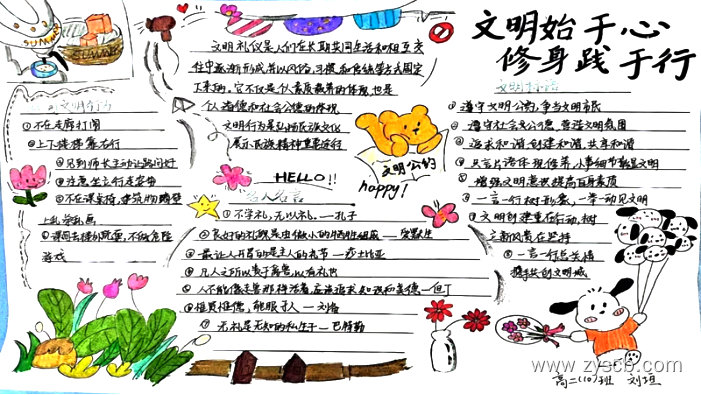 文明始于心
修身践于行
文明礼仪是人们在长期共同生活和相互交
往中逐渐形成并以风俗、习惯和传统等方式固定
下来的，它不仅是个人素质教养的体现也是
个人道德和社会公德的体现
文明行为是弘扬民族文化
展示民族精神重要途径
①不在走廊打闹
②上下楼梯靠右行
③见到师长主动让路问好
④注意坐立行走姿势
⑤不在课桌椅、建筑物
上乱涂乱画
⑥课间去操外玩耍，不做危险
游戏
HELLO!!
名人名言
①不学礼，无以礼 —孔子
②良好的礼貌是由微小的牺牲组成 —爱默生
③最让人开胃的是主人的礼节 —莎士比亚
④凡人之所以贵于禽兽，以有礼也
⑤人不能像走兽那样活着，应该追求知识和美德 —但丁
⑥惟贤惟德，能服于人 —刘备
⑦无礼是无知的私生子 —巴特勒
文明公约
happy!
文明标语
①遵守文明公约，争当文明市民
②遵守社会公德，营造文明氛围
③追求和谐，创建和谐，共享和谐
④只言片语体现修养，小事细节彰显文明
⑤增强文明意识提高自身素质
⑥一言一行树形象，一举一动见文明
⑦文明创建重在行动，树
立新风贵在坚持
⑧一言一行总关情
携手共创文明城
www.zyscb.com
高二(10)班 刘垣